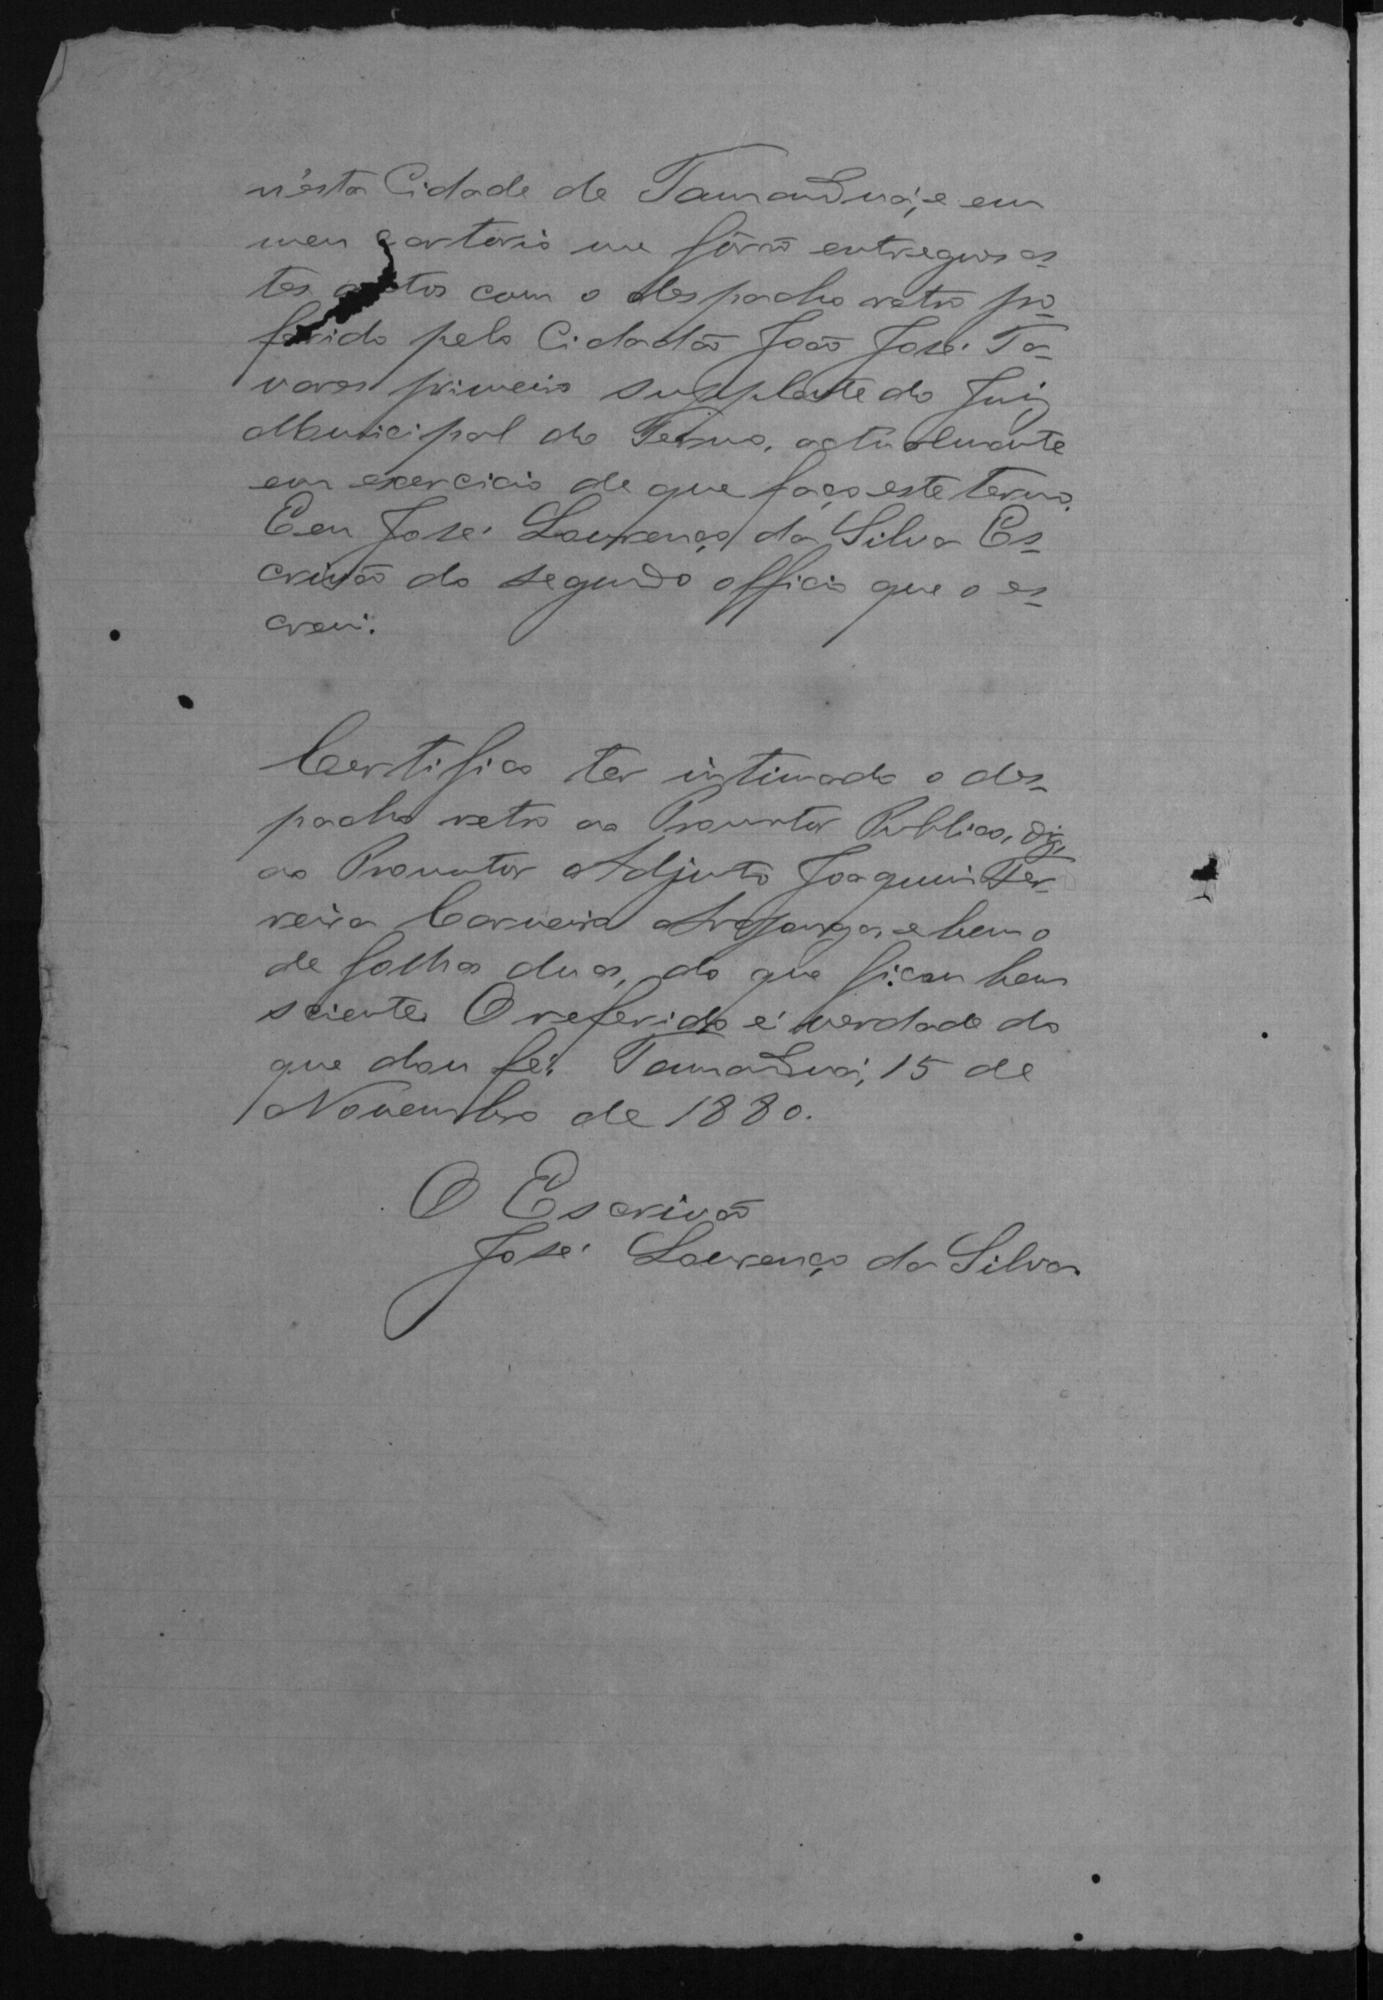 n'esta Cidade de Tamanduá, e em
meu cartorio me fôrão entregues es-
tes autos com o despacho retro pro-
ferido pelo Cidadão João José Ta-
vares primeiro supplente do Juiz
Municipal do Termo, actualmente
em exercicio de que faço este termo.
E eu José Lourenço da Silva Es-
crivão do segundo officio que o es-
crevi.
Certifico ter intimado o des-
pacho retro ao Promotor Publico, digo,
ao Promotor Adjunto Joaquim Fer-
reira Carneiro e bem o
de folhas duas, do que ficou bem
sciente. O referido é verdade do
que dou fé. Tamanduá, 15 de
Novembro de 1880.
O Escrivão
José Lourenço da Silva